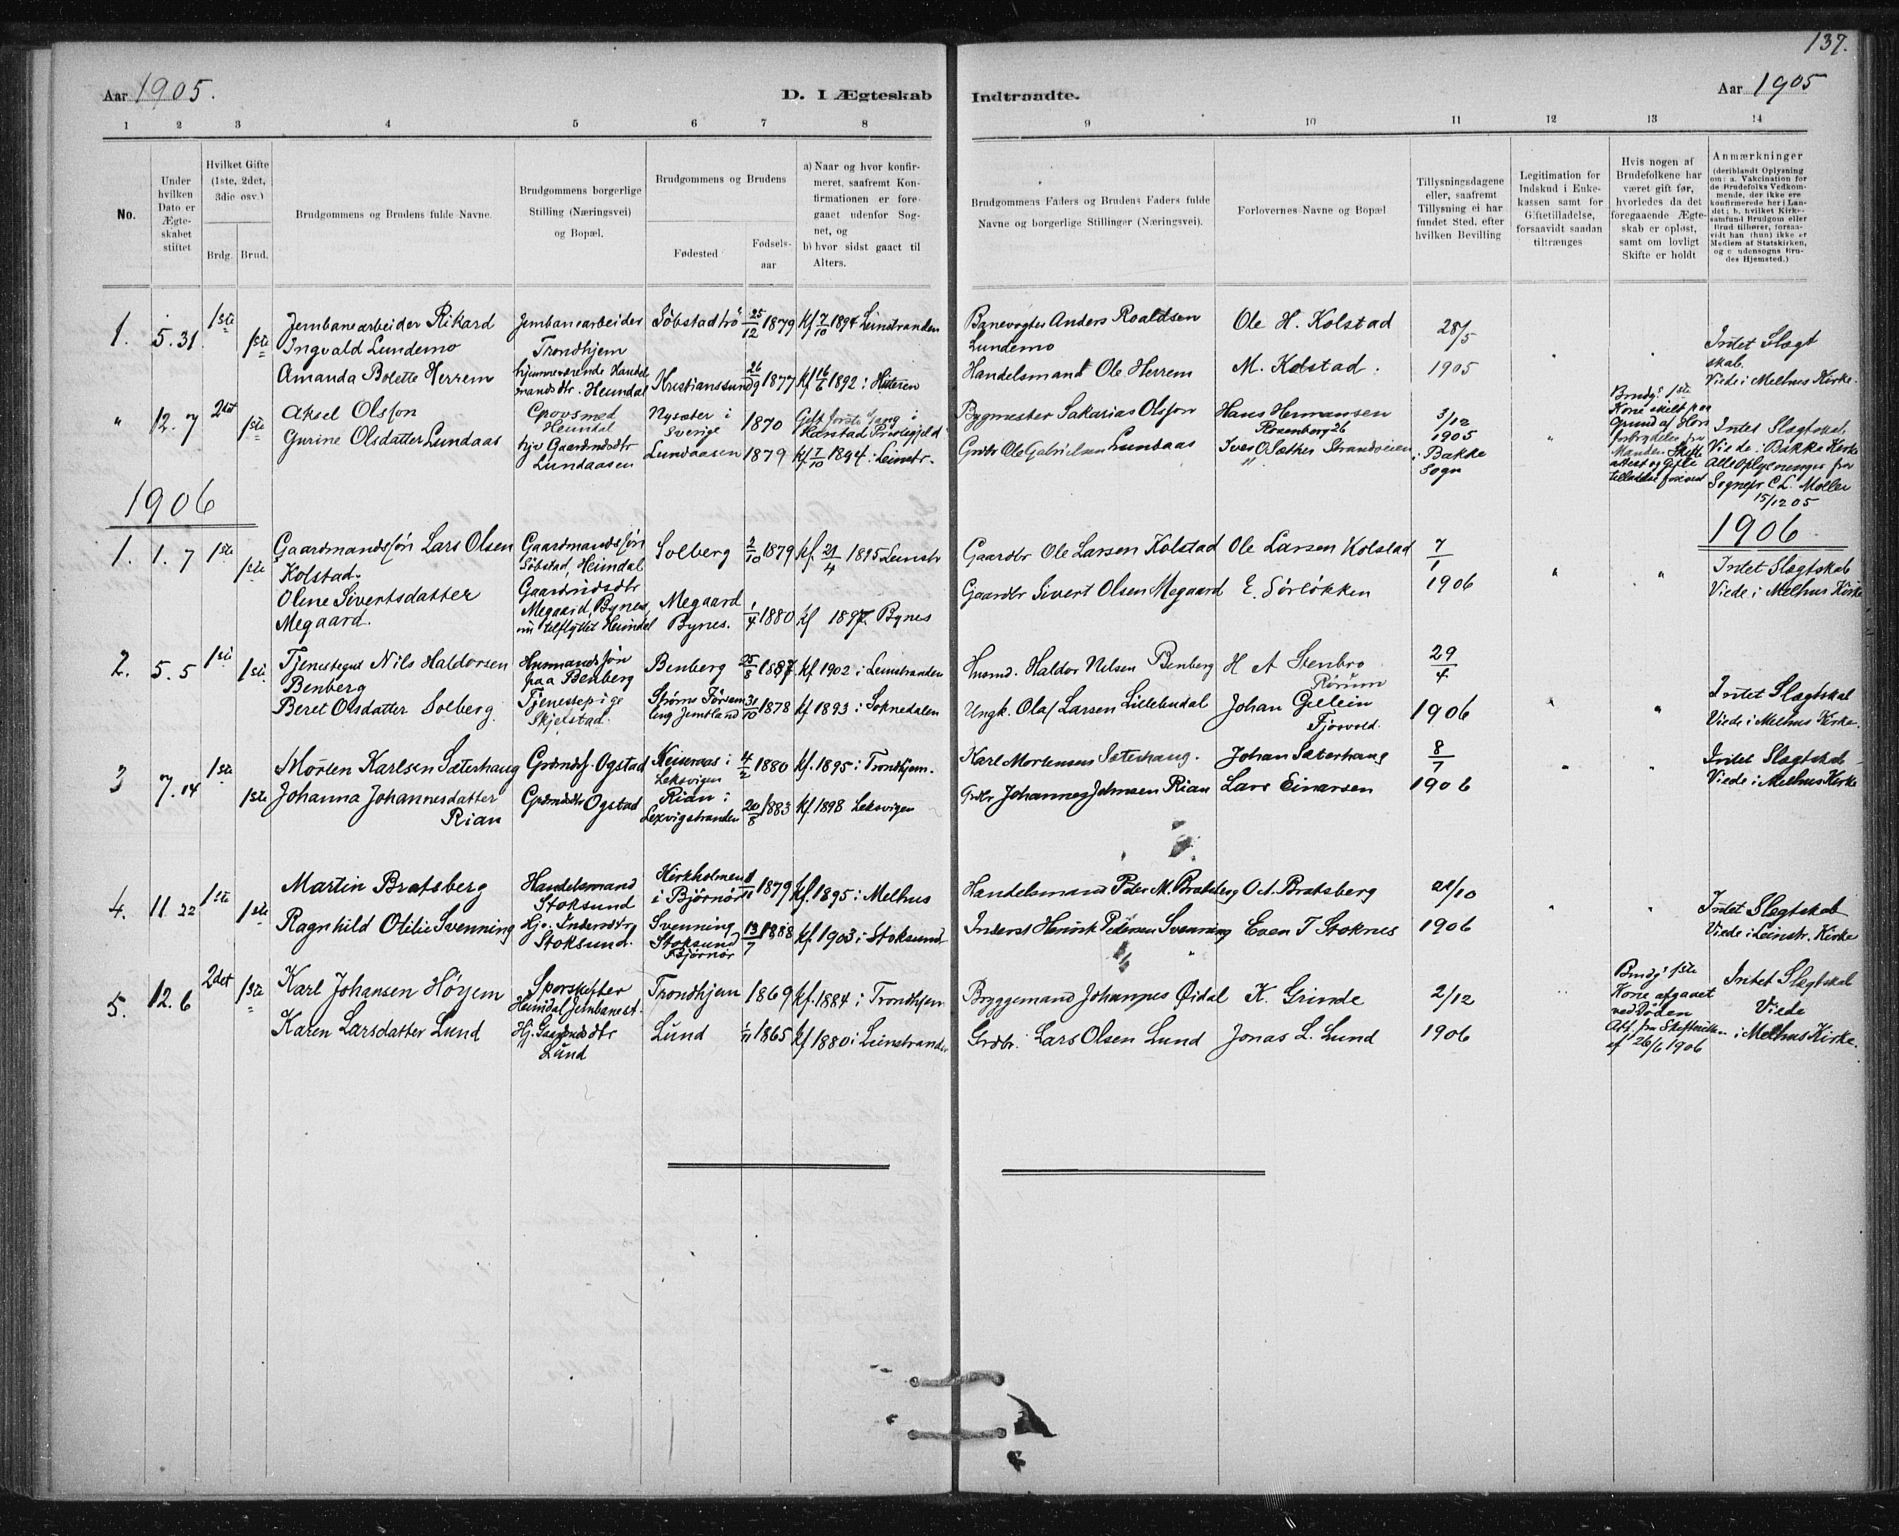 137.
Aar 1905.
D. I Ægteskab
Indtraadte.
Aar 1905
1 2 3 4 5 6 7 8
9 10 11 12 13 14
No.
Under hvilken Dato er Ægteskabet stiftet
Hvilket Gifte (1ste, 2det, 3die osv.)
Brdg. Brud.
Brudgommens og Brudens fulde Navne.
Brudgommens borgerlige Stilling (Næringsvei) og Bopæl.
Brudgommens og Brudens
Fødested
Fødsels-aar
a) Naar og hvor konfirmeret, saafremt Konfirmationen er foregaaet udenfor Sognet, og
b) hvor sidst gaaet til Alters.
Brudgommens Faders og Brudens Faders fulde Navne og borgerlige Stillinger (Næringsvei).
Forlovernes Navne og Bopæl
Tillysningsdagene eller, saafremt Tillysning ei har fundet Sted, efter hvilken Bevilling
Legitimation for Indskud i Enkekassen samt for Giftetilladelse, forsaavidt saadan tiltrænges
Hvis nogen af Brudefolkene har været gift før, hvorledes da det foregaaende Ægteskab er opløst, samt om lovligt Skifte er holdt
Anmærkninger
(deriblandt Oplysning om: a. Vakcination for de Brudefolks Vedkommende, der ikke ere konfirmerede her i Landet; b. hvilket Kirkesamfund Brudgom eller Brud tilhører, forsaavidt han (hun) ikke er Medlem af Statskirken, og c. udensogns Brudes Hjemsted.)
1. 5.31. 1ste 1ste
Jernbanearbeider Rikard
Ingvald Lundemo
Amanda Bolette Herrem
Jernbanearbeider
Trondhjem
hjemmeværende Handel
mandsdtr. Heimdal
Søbstadtrø 25/12 1879 kf 7/10 1894 Leinstranden
Kristianssund 26/9 1877 kf 16/6 1892 i Hitteren
Banevogter Anders Roaldsen
Lundemo
Handelsmand Ole Herrem
Ole H. Kolstad
M. Kolstad.
28/5
1905
Intet Slægt
skab.
Viede i Melhus Kirke.
" 12.7 2det 1ste
Aksel Olsson
Gurine Olsdatter Lundaas
Grovsmed
Heimdal
hjv Gaardmdsdtr
Lundaasen
Nysæter i
Sverige 1870
Gift første Gang i
Harstad Præstegjeld
Lundaasen 1879 kf 7/10 1894 i Leinstr.
Bygmester Sakarias Olsson
Grdbr Ole Gabrielsen Lundaas
Hans Hermansen
Rosenborg 26
Iver O. Sæther Strandveien
3/12
1905
i Bakke
Sogn
Brudg: 1ste
Kone skilt paa
Grund af Hors
forbrydelse fra
Manden Skifte
attest og Gifte
tilladelse forevist
Intet Slægtskab.
Viede i Bakke Kirke
Alle Oplysninger fra
Sognepr C L. Møller
15/12 05
1906
1906.
1. 1.7 1ste 1ste
Gaardmandssøn Lars Olsen
Kolstad.
Oline Sivertsdatter
Megaard.
Gaardmandssøn
Søbstad, Heimdal
Gaardmdsdtr
Megaard, Bynes,
nu tilflyttet Heimdal
Solberg 2/10 1879 kf. 21/4 1895 Leinstr
Megaard
Bynes. 1/4 1880 kf 1897 Bynes
Gaardbr Ole Larsen Kolstad
Gaardbr Sivert Olsen Megaard
Ole Larsen Kolstad
E. Sørløkken
7/1
1906
Intet Slægtskab
Viede i Melhus Kirke
2. 5.5 1ste 1ste.
Tjenestegut Nils Haldorsen
Benberg
Beret Olsdatter Solberg.
Husmandssøn
paa Benberg
Tjenestepige
Skjefstad.
Benberg 25/8 1887. kf 1902 i Leinstranden
31/10 1878 kf 1893 i Soknedalen
Husmd. Haldor Nilsen Benberg
Ungk. Olaf Larsen Lillebudal
H A Stenbro
Rørum
Johan Gilein
Fjosvold.
29/4
1906
Intet Slægtskab
Viede i Melhus Kirke.
3 7.14 1ste 1ste
Morten Karlsen Sæterhaug
Johanna Johannesdatter
Rian
Grdmdss. Ogstad
Grdmdsdtr Ogstad
Keiseraas i
Leksvigen 4/2 1880 kf. 1895 i Trondhjem.
Rian i
Lexvigstranden 20/8 1883 kf. 1898 Leksvigen
Karl Mortensen Sæterhaug.
Grdbr Johannes Johnsen Rian
Johan Sæterhaug
Lars Einarsen
8/7
1906
Intet Slægtskab
Viede i Melhus Kirke
4. 11.22 1ste 1ste
Martin Bratsberg
Ragnhild Otilie Svenning
Handelsmand
Stoksund
Hjv. Inderstdtr
Stoksund.
Kirkholmen
i Bjørnør 1879 kf. 1895 i Melhus
Svenning
Stoksund
Bjørnør 13/7 1888 kf. 1903 i Stoksund
Handelsmand Peter M. Bratsberg
Inderst Henrik Pedersen Svenning
Oct. Bratsberg
Even T Stoknes
21/10
1906
Intet Slægtskab
Viede i Leinstr. Kirke
5. 12.6 2det 1ste
Karl Johansen Høyem
Karen Larsdatter Lund
Sporskifter
Heimdal Jernbanest.
Hj. Gaardmdsdtr
Lund
Trondhjem 1869 kf. 1884 i Trondhjem
Lund 1/11 1865 kf 1880 i Leinstranden
Bryggemand Johannes Øidal
Grdbr. Lars Olsen Lund
K. Grinde
Jonas L. Lund
2/12
1906
Brudg: 1ste
Kone afgaaet
ved Døden
Att. fra Skifteretten
af 26/6 1906
Intet Slægtskab
Viede
i Melhus Kirke.